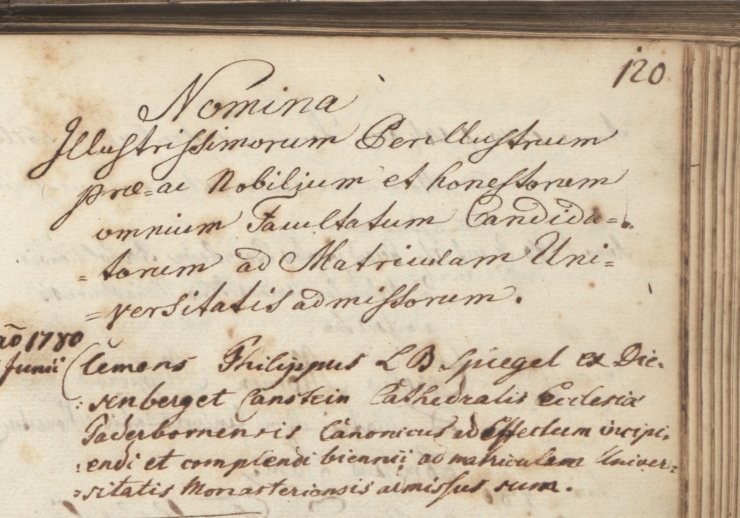 120
Nomina
Illustrissimorum Perillustrium
præ=ac Nobilium et honestorum
omnium Facultatum Candida=
=torum ad Matriculam Uni=
=versitatis admissorum.
aõ 1780
Junii Clemens Philippus L B Spiegel ex Die:
:senberg et Canstein Cathedralis Ecclesiæ
Paderbornensis Canonicus ad effectum incipi:
:endi et complendi biennii ad matriculam Univer=
=sitatis Monasteriensis admissus sum.